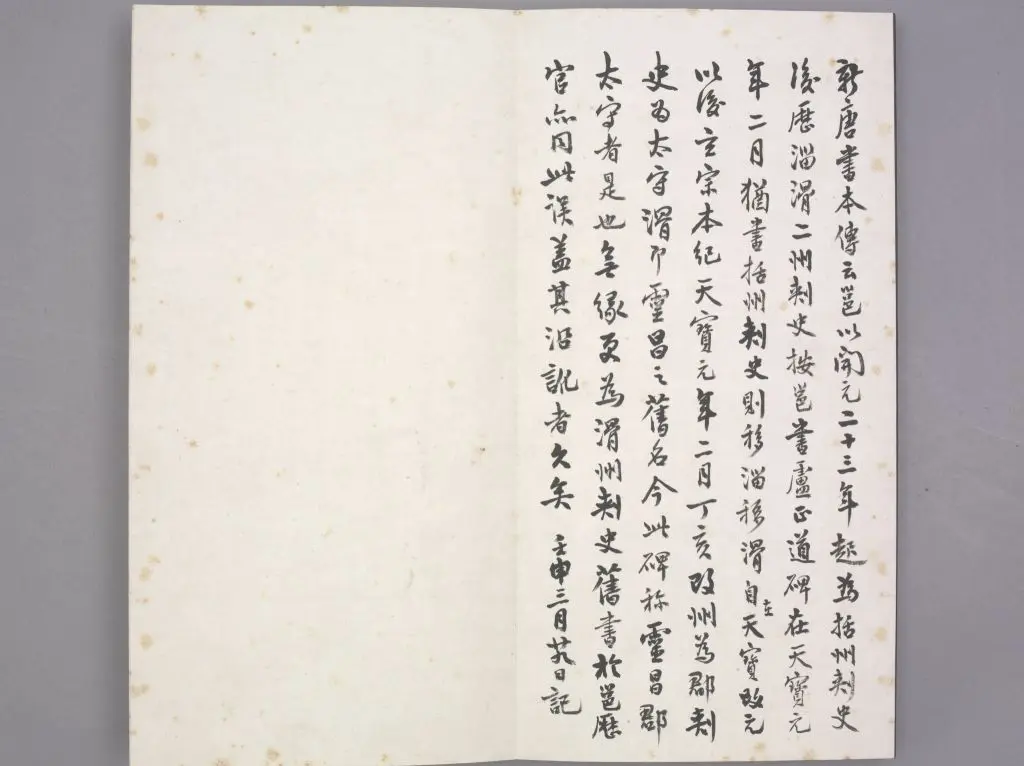 新唐書本傳云邕以開元二十三年起為括州刺史
後歷淄滑二州刺史按邕書盧正道碑在天寶元
年二月猶書括州刺史則移淄移滑自在天寶改元
以後玄宗本紀天寶元年二月丁亥改州為郡刺
史為太守滑即靈昌之舊名今此碑称靈昌郡
太守者是也無緣更為滑州刺史舊書於邕歷
官亦同此误盖其沿訛者久矣 壬申三月廿八日記